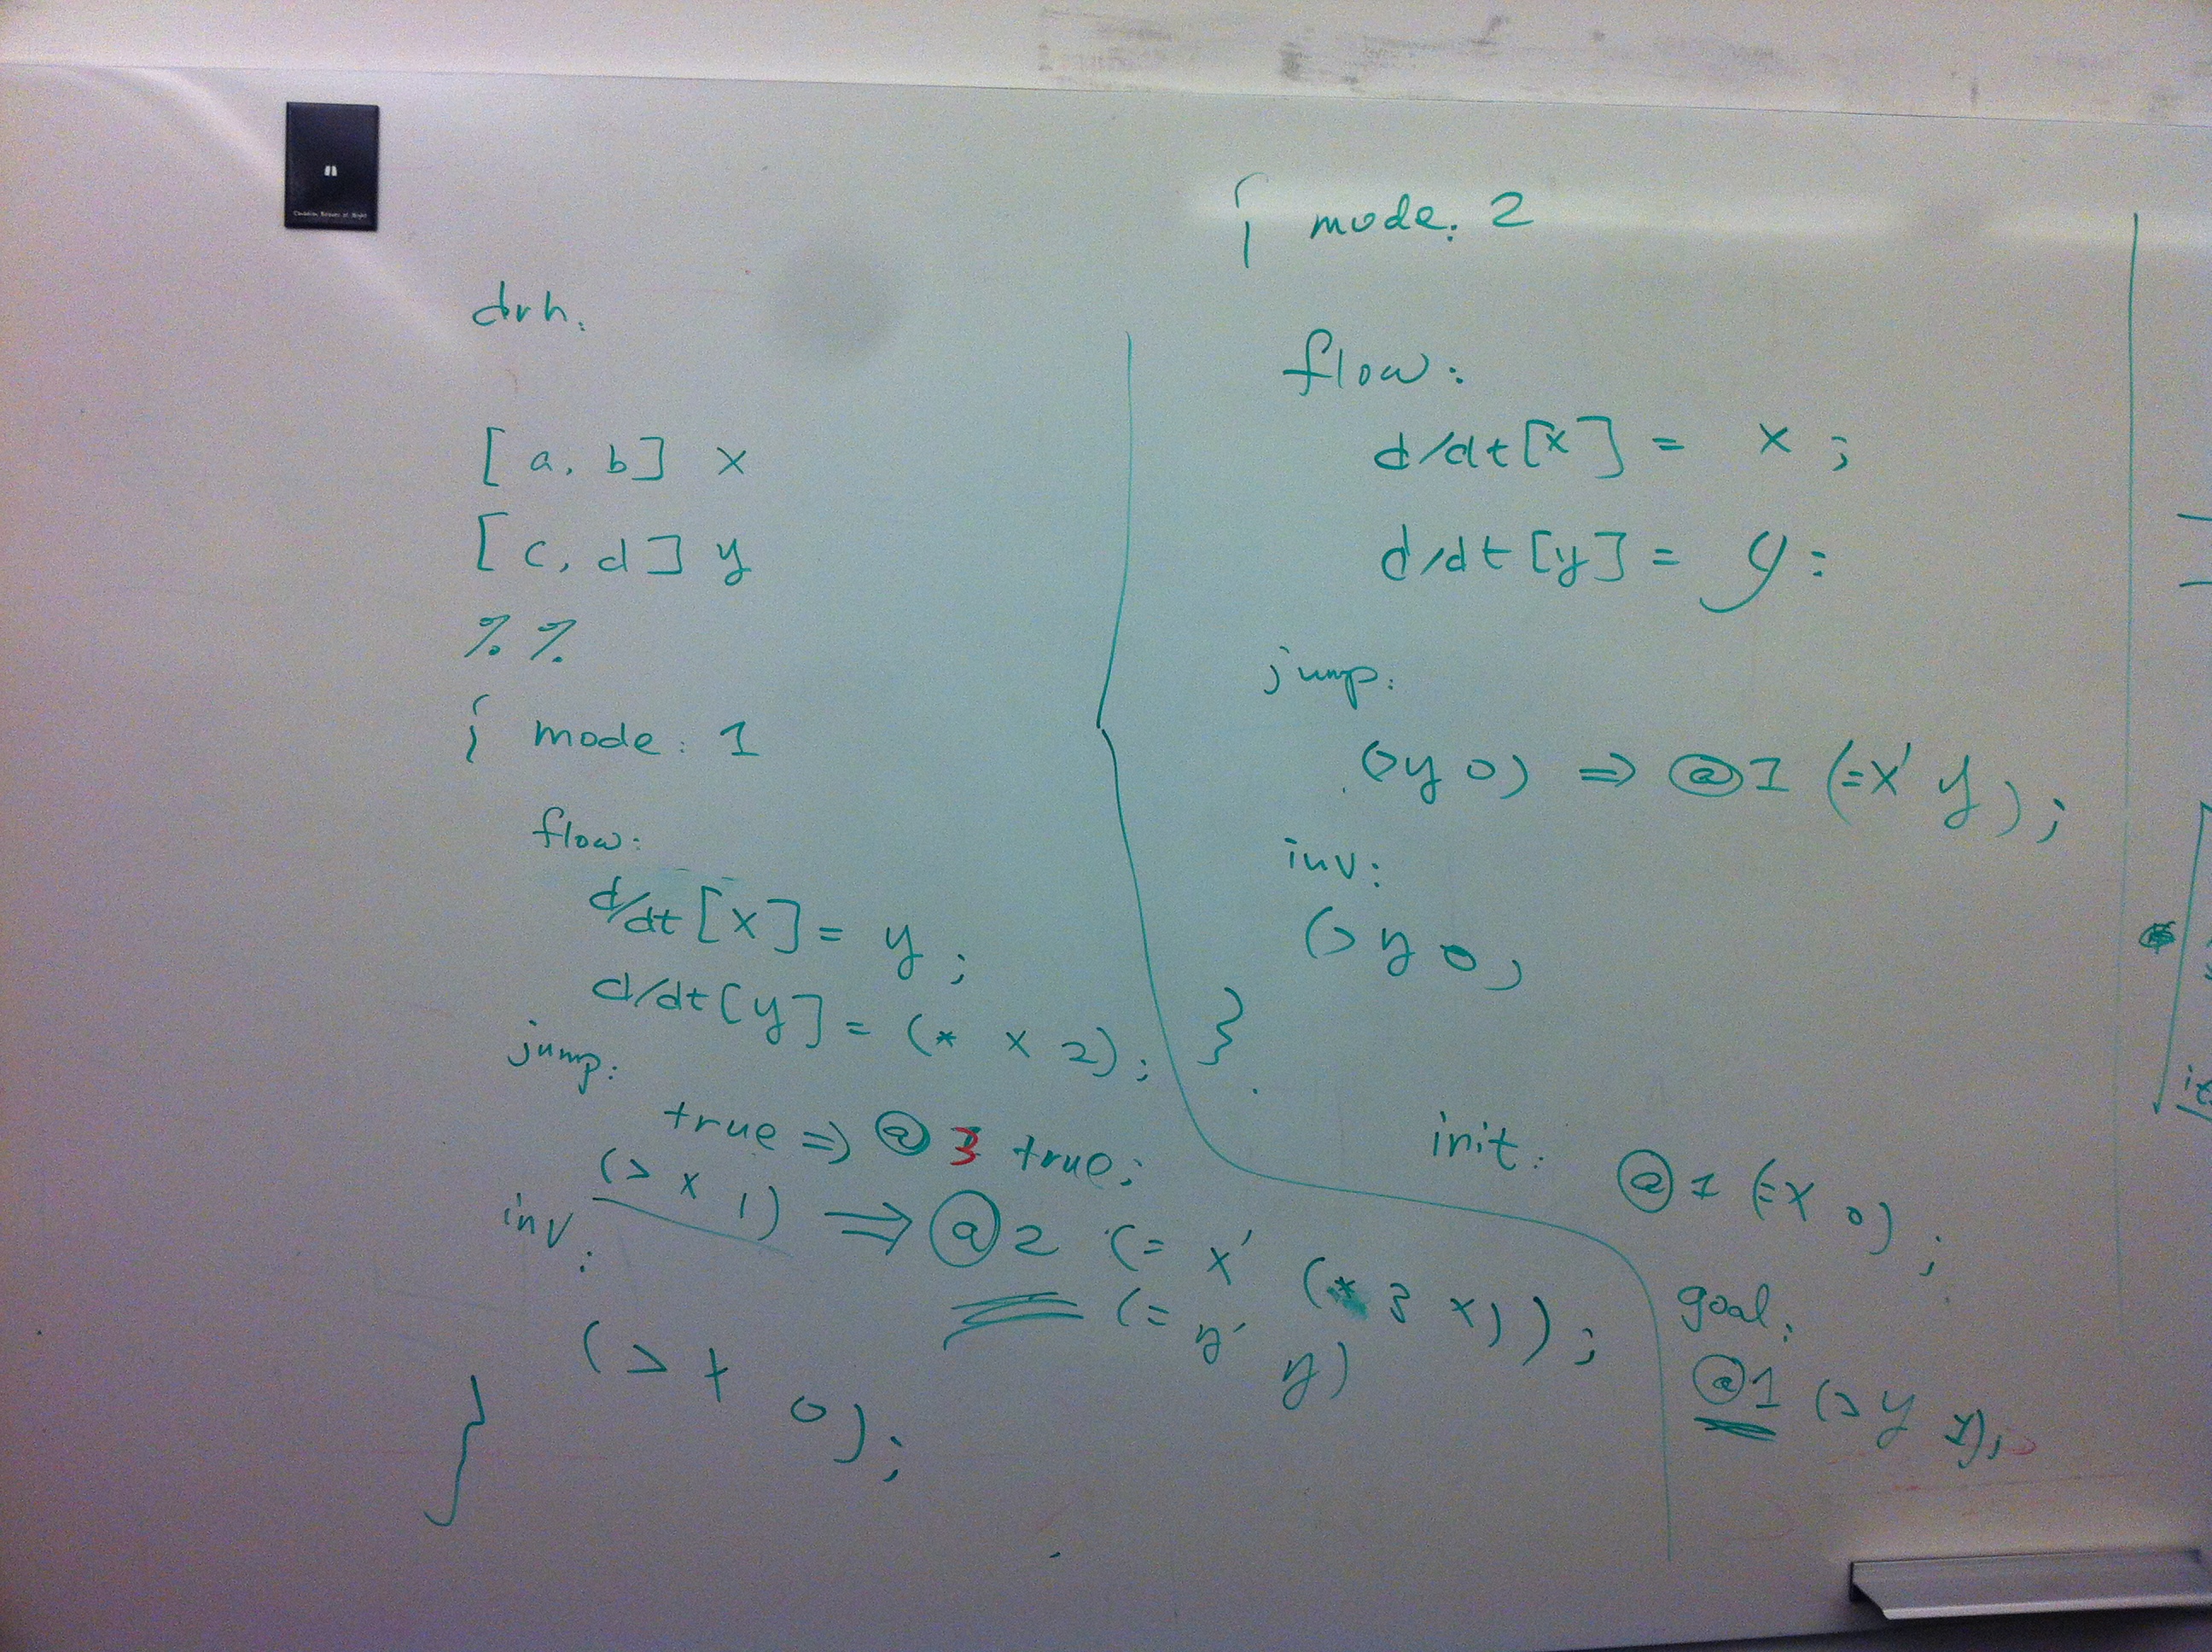 drh.
[ a, b ] x
[ c, d ] y
% %
{ mode: 1
flow:
d/dt [x] = y ;
d/dt [y] = (* x 2) ;
jump:
true => @ 3 true;
(> x 1) => @ 2 (= x' (* 3 x)) ;
(= y' y)
inv:
(> x 0) ;
}
{ mode: 2
flow:
d/dt [x] = x ;
d/dt [y] = y :
jump:
(> y 0) => @ 1 (= x' y) ;
inv:
(> y 0 ;
}
init:
@ 1 (= x 0) ;
goal:
@1 (> y 1);